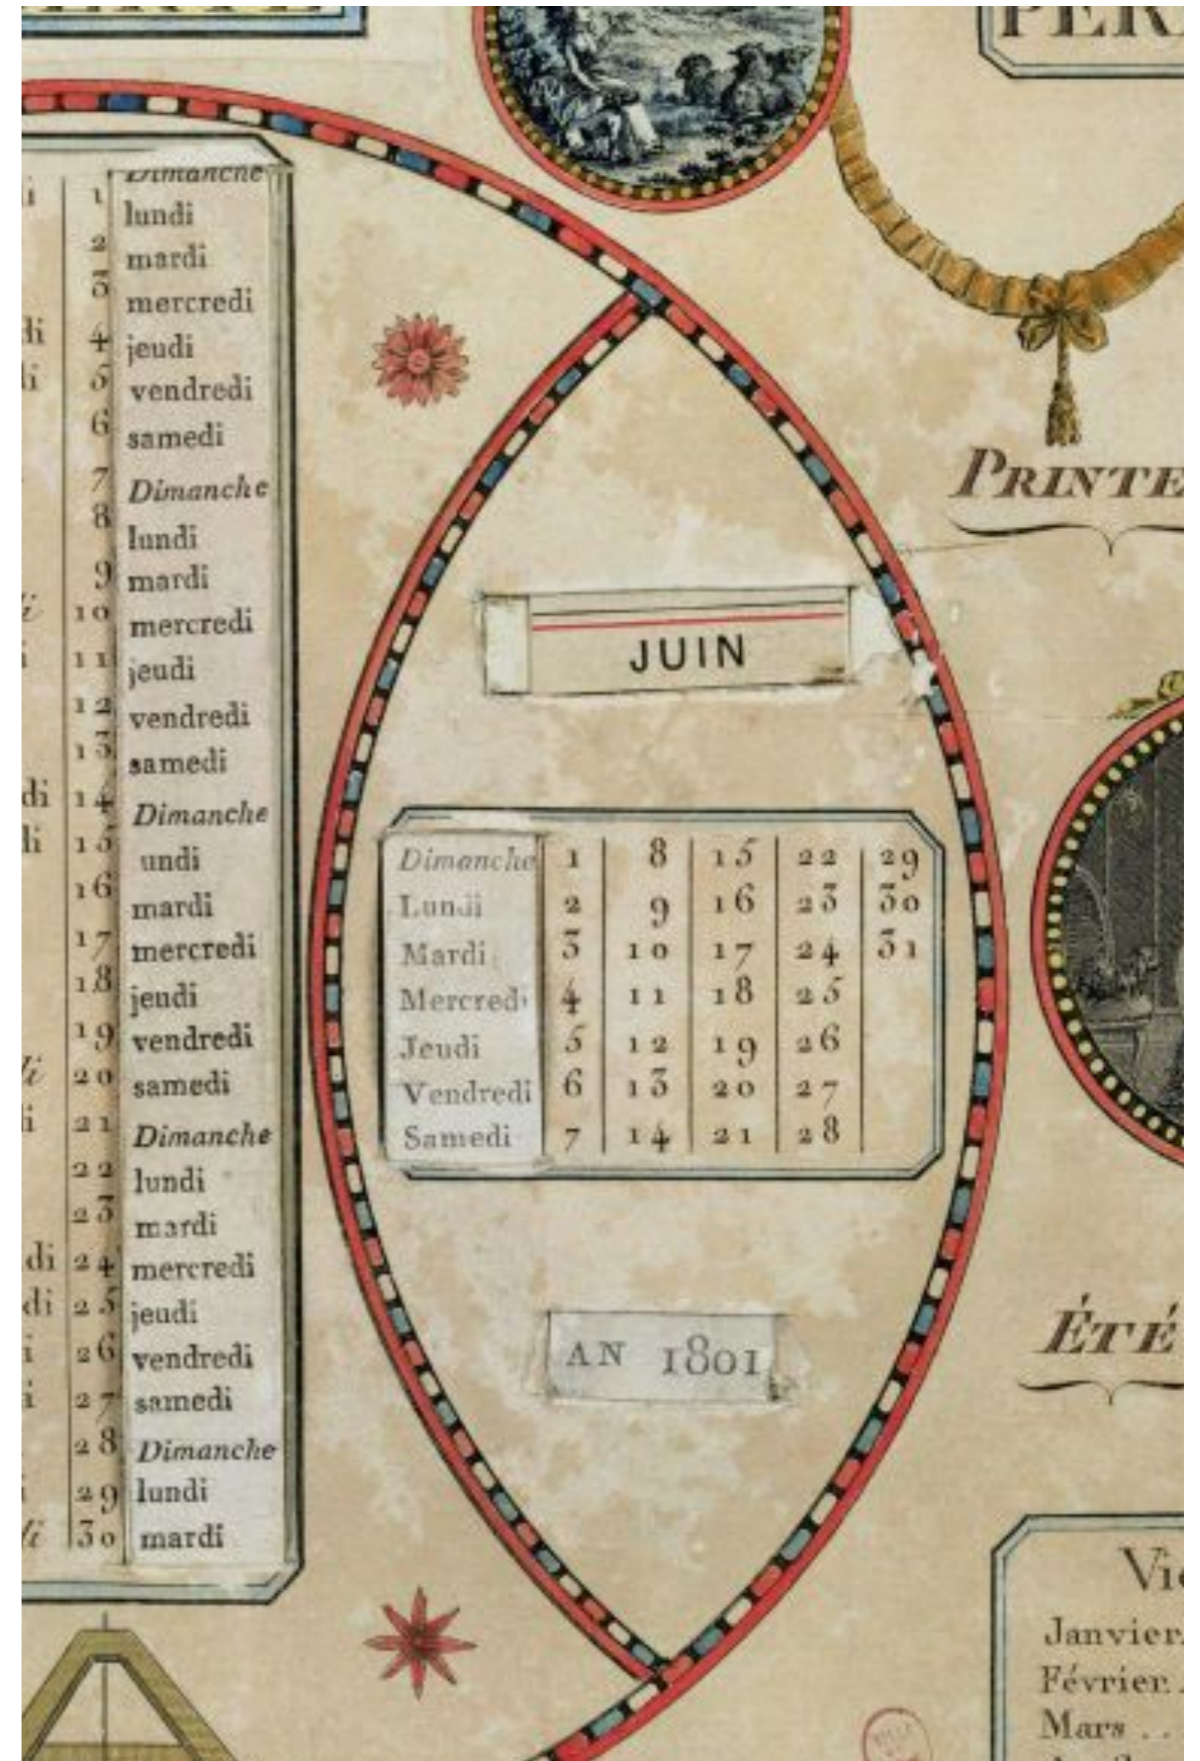 PER
Dimanche
1 lundi
2 mardi
3 mercredi
di 4 jeudi
5 vendredi
6 samedi
7 Dimanche
8 lundi
9 mardi
10 mercredi
11 jeudi
12 vendredi
13 samedi
di 14 Dimanche
15 undi
16 mardi
17 mercredi
18 jeudi
19 vendredi
20 samedi
21 Dimanche
22 lundi
23 mardi
di 24 mercredi
di 25 jeudi
26 vendredi
27 samedi
28 Dimanche
29 lundi
30 mardi
PRINTE
JUIN
Dimanche 1 8 15 22 29
Lundi 2 9 16 23 30
Mardi 3 10 17 24 31
Mercredi 4 11 18 25
Jeudi 5 12 19 26
Vendredi 6 13 20 27
Samedi 7 14 21 28
AN 1801
ÉTÉ
Vi
Janvier
Février
Mars . .